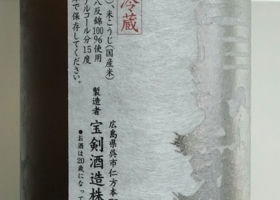 冷蔵
、米こうじ(国産米)
八反錦100%使用
アルコール分15度
で保存してください。
製造者
広島県呉市仁方本
宝剣酒造株
●お酒は20歳になって